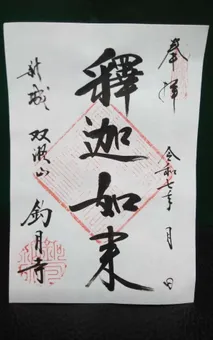 奉拝
令和七年 月 日
釋迦如来
双瀬山
釣月寺